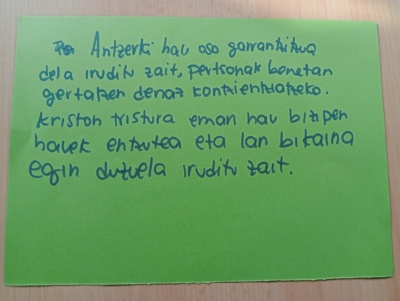 Antzerki hau oso garrantzitsua
dela iruditu zait, pertsonak benetan
gertatzen denaz kontzientziatzeko.
Kriston tristura eman hau bizipen
hauek entzutea eta lan bikaina
egin duzuela iruditu zait.